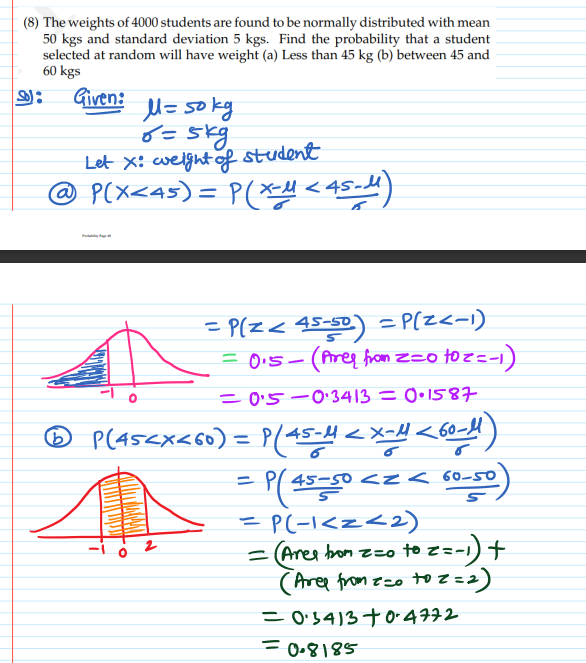 (8) The weights of 4000 students are found to be normally distributed with mean
50 kgs and standard deviation 5 kgs. Find the probability that a student
selected at random will have weight (a) Less than 45 kg (b) between 45 and
60 kgs
Sol: Given: μ = 50 kg
σ = 5 kg
Let X: weight of student
(a) P(X<45) = P(X-μ/σ < 45-μ/σ)
Probability Page 49
= P(Z < 45-50/5) = P(Z<-1)
= 0.5 - (Area from Z=0 to Z=-1)
-1 0
= 0.5 - 0.3413 = 0.1587
(b) P(45<X<60) = P(45-μ/σ < X-μ/σ < 60-μ/σ)
= P(45-50/5 < Z < 60-50/5)
= P(-1<Z<2)
-1 0 2
= (Area from Z=0 to Z=-1) +
(Area from Z=0 to Z=2)
= 0.3413 + 0.4772
= 0.8185